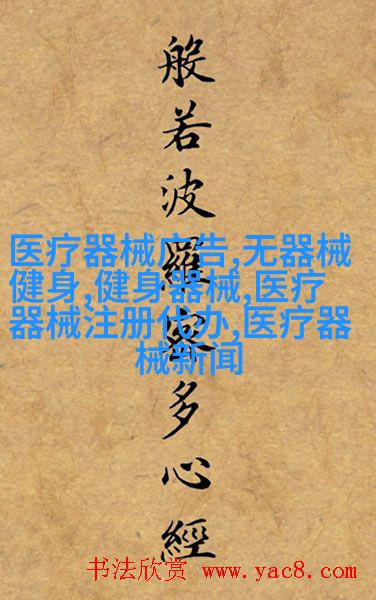 般若波羅蜜多心經
医疗器械广告,无器械
健身,健身器械,医疗
器械注册代办,医疗器
械新闻
书法欣赏 www.yac8.com